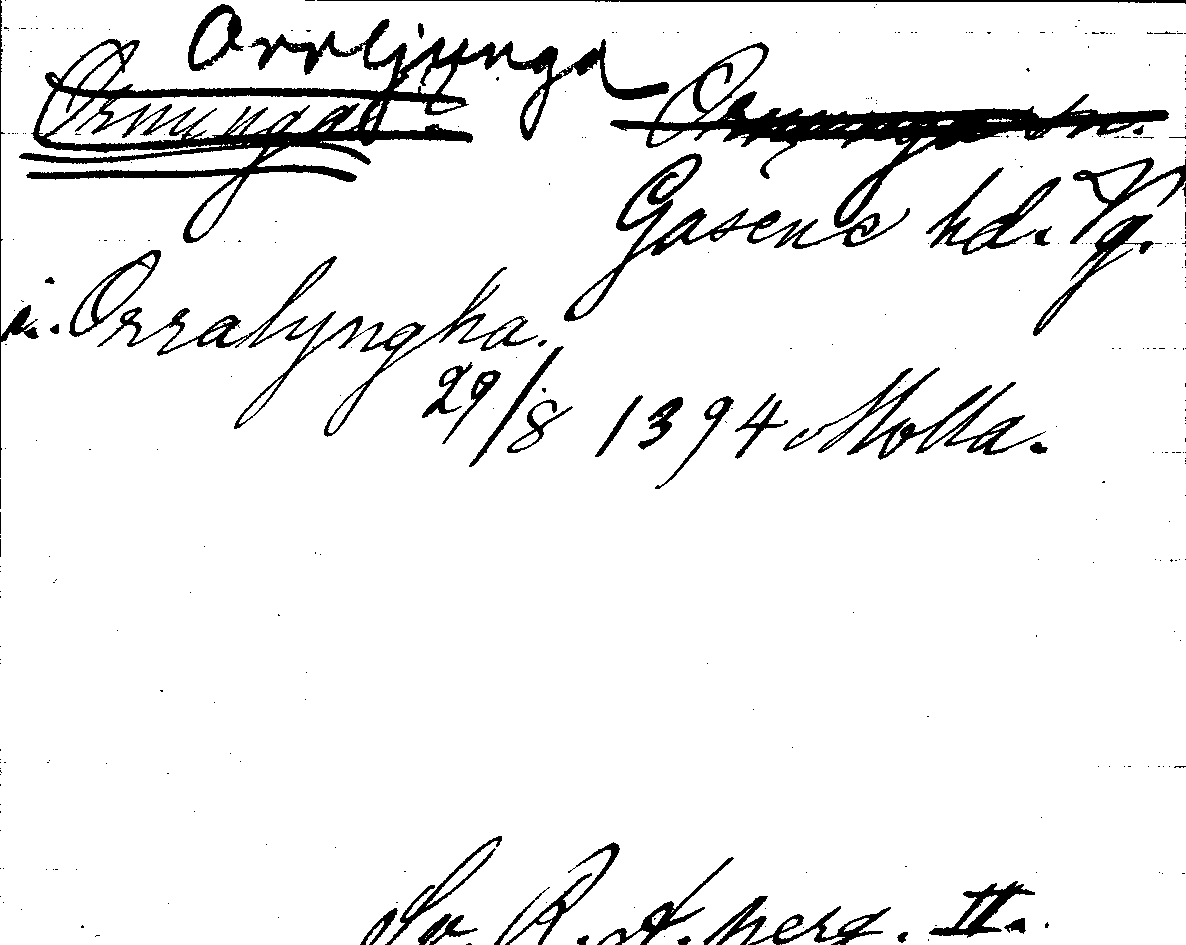 Orrljunga
Ornunga? Ornunga sn.
Gäsene hd. Vg.
i. Orralyngha.
29/8 1394 Molla.
Sv. R. A. perg. II.